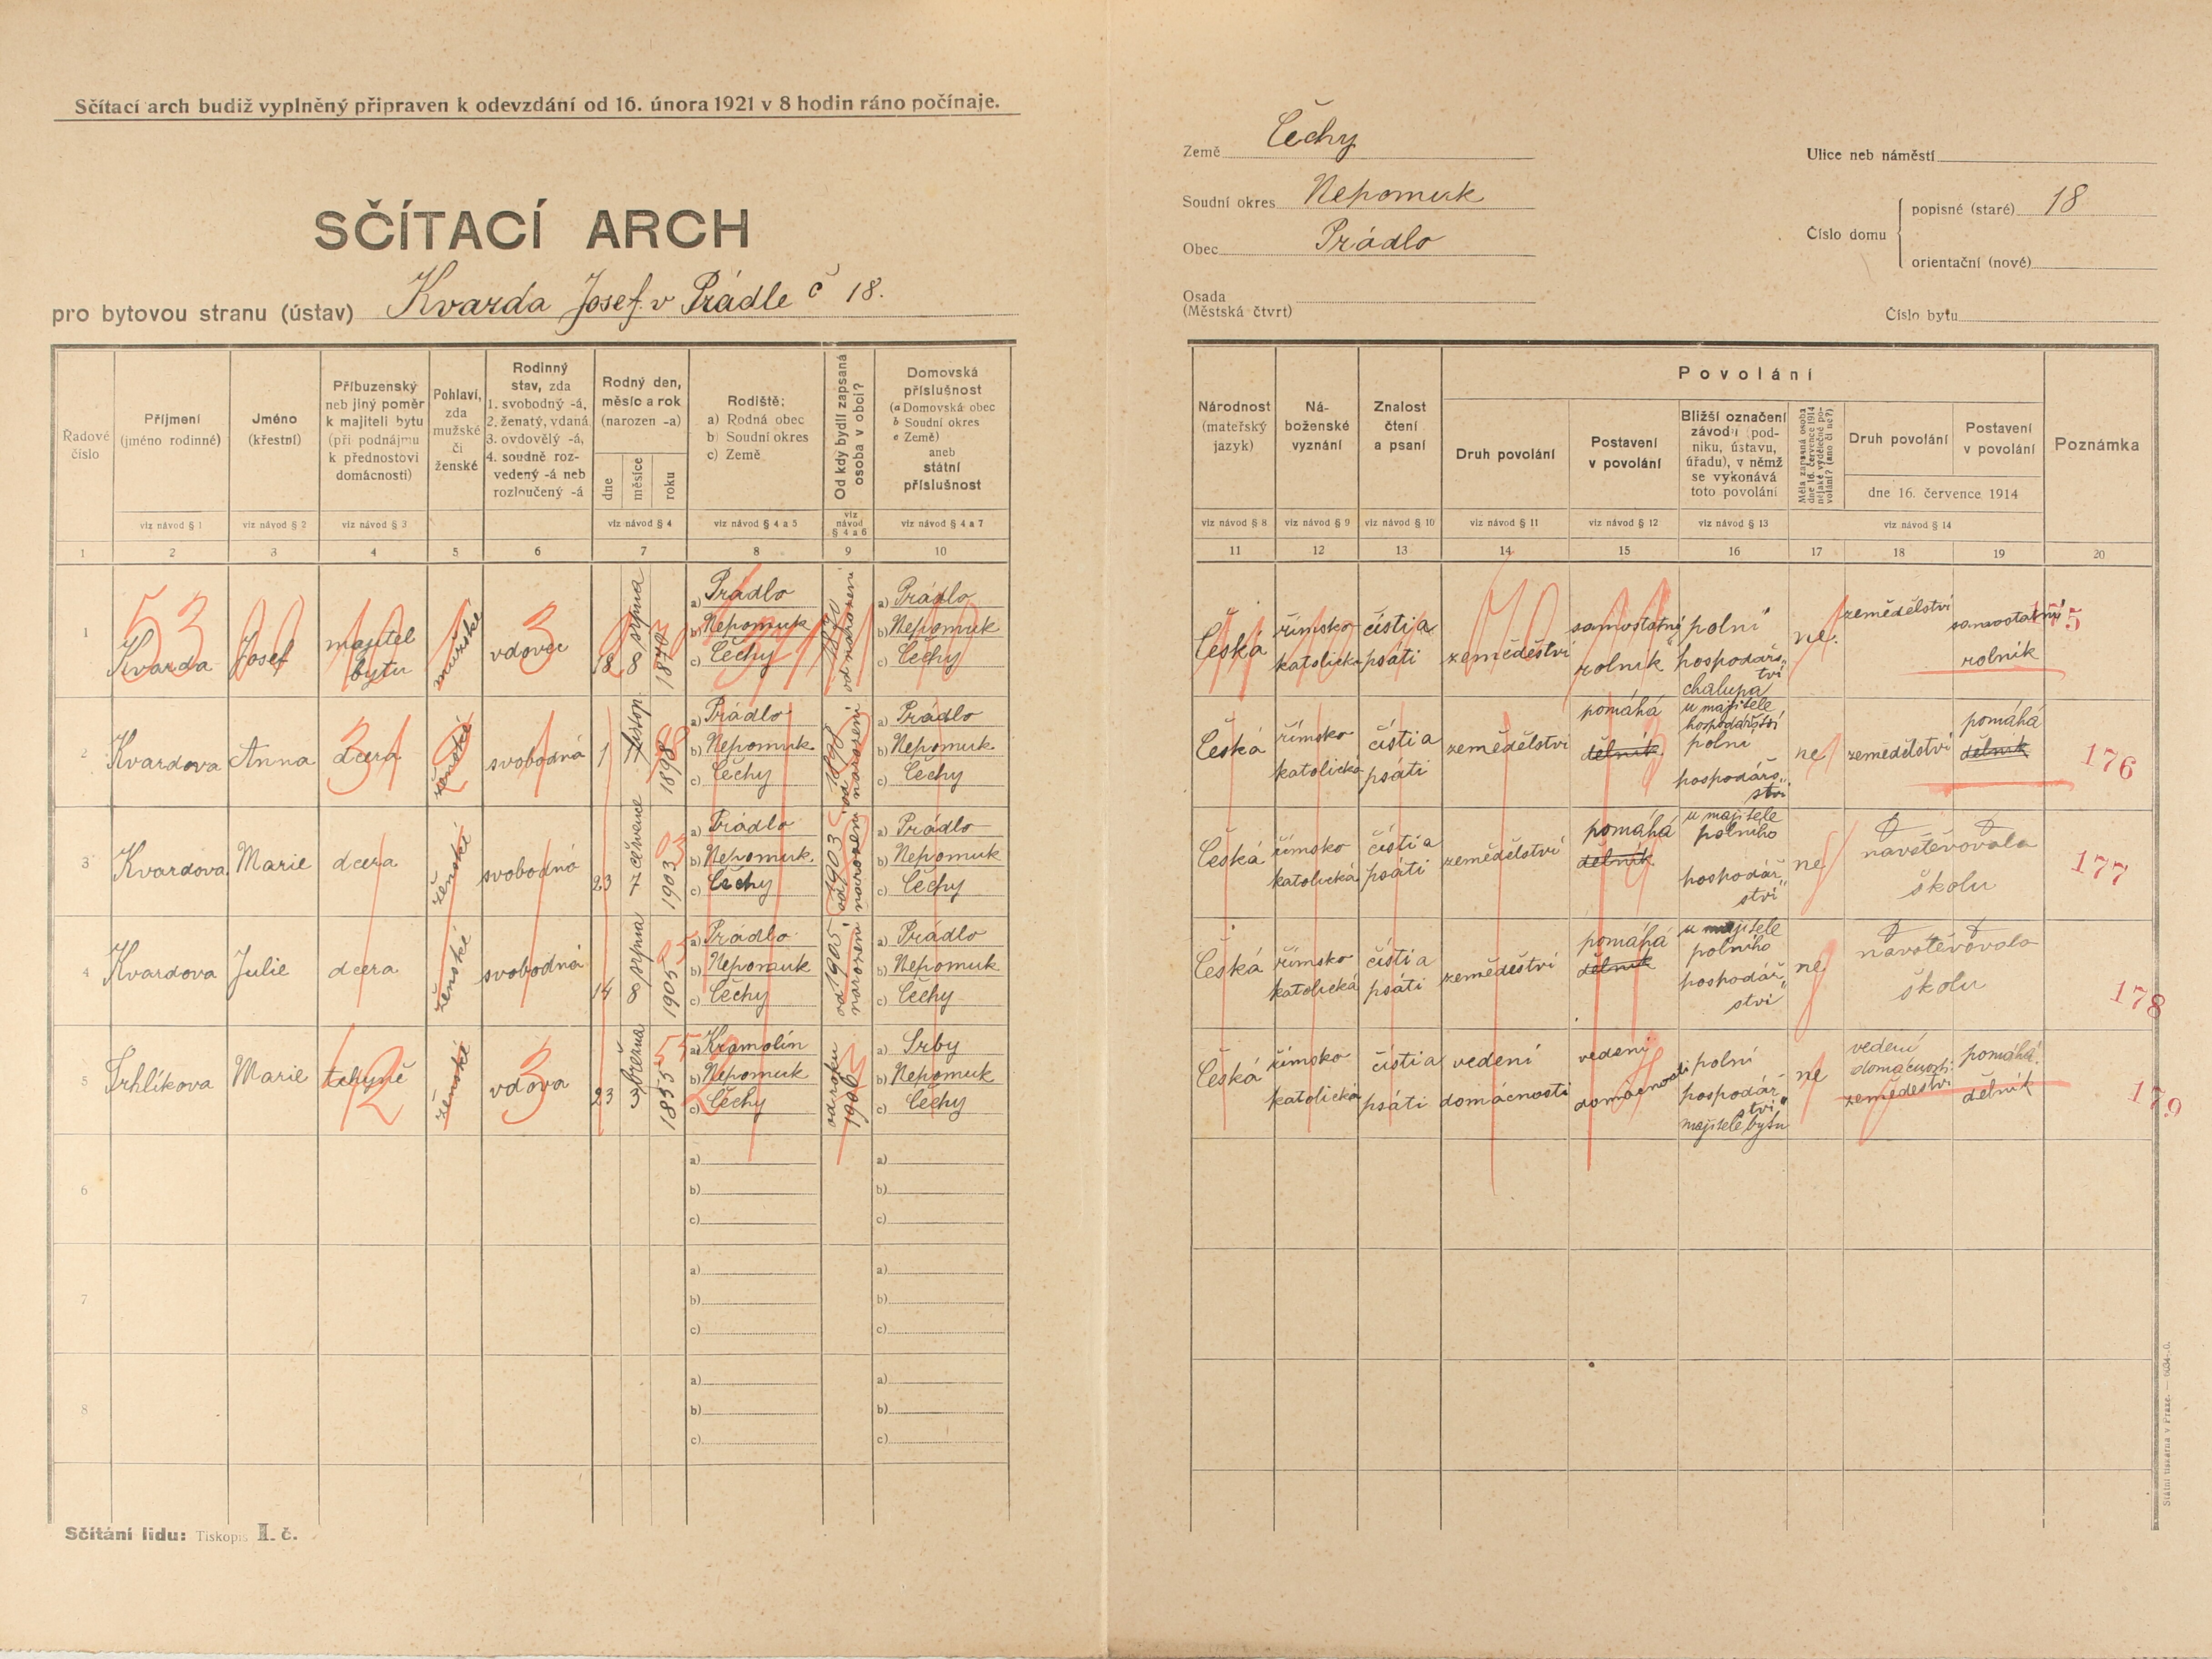 Sčítací arch budiž vyplněný připraven k odevzdání od 16. února 1921 v 8 hodin ráno počínaje.
SČÍTACÍ ARCH
pro bytovou stranu (ústav) Kvarda Josef v Prádle č 18.
Země Čechy
Soudní okres Nepomuk
Obec Prádlo
Osada
(Městská čtvrt)
Ulice neb náměstí
Číslo domu
popisné (staré) 18
orientační (nové)
Číslo bytu
Řadové číslo
Příjmení (jméno rodinné)
Jméno (křestní)
Příbuzenský neb jiný poměr k majiteli bytu (při podnájmu k přednostovi domácnosti)
Pohlaví, zda mužské či ženské
Rodinný stav, zda 1. svobodný -á, 2. ženatý, vdaná 3. ovdovělý -á, 4. soudně rozvedený -á neb rozloučený -á
Rodný den, měsíc a rok (narozen -a)
dne měsíce roku
Rodiště: a) Rodná obec b) Soudní okres c) Země
Od kdy bydlí zapsaná osoba v obci?
Domovská příslušnost (a Domovská obec b Soudní okres c Země) aneb státní příslušnost
viz návod § 1
viz návod § 2
viz návod § 3
viz návod § 4
viz návod § 4 a 5
viz návod § 4 a 6
viz návod § 4 a 7
1 2 3 4 5 6 7 8 9 10
Národnost (mateřský jazyk)
Náboženské vyznání
Znalost čtení a psaní
Povolání
Druh povolání
Postavení v povolání
Bližší označení závodu (podniku, ústavu, úřadu), v němž se vykonává toto povolání
Měla zapsaná osoba dne 16. července 1914 nějaké výdělečné povolání? (ano či ne?)
Druh povolání
Postavení v povolání
dne 16. července 1914
Poznámka
viz návod § 8
viz návod § 9
viz návod § 10
viz návod § 11
viz návod § 12
viz návod § 13
viz návod § 14
11 12 13 14 15 16 17 18 19 20
1 Kvarda Josef majitel bytu mužské vdovec 18 8 srpna 1870
a) Prádlo b) Nepomuk c) Čechy
1870 od narození
a) Prádlo b) Nepomuk c) Čechy
Česká římsko katolická čísti a psáti zeměděství samostatný rolník polní hospodářství chalupa ne. zemědělství samostatný rolník
2 Kvardova Anna dcera ženské svobodná 1 listop. 1898
a) Prádlo b) Nepomuk. c) Čechy
od 1898 narození
a) Prádlo b) Nepomuk. c) Čechy
Česká římsko katolická čísti a psáti zemědělství pomáhá dělník u majitele hospodářství polní hospodářství ne zemědělství pomáhá dělník 176
3 Kvardova Marie dcera ženské svobodná 23 7 července 1903
a) Prádlo b) Nepomuk. c) Čechy
od 1903 narození
a) Prádlo b) Nepomuk c) Čechy
Česká římsko katolická čísti a psáti zemědělství pomáhá dělník u majitele polního hospodářství ne navštěvovala školu 177
4 Kvardova Julie dcera ženské svobodná 14 8 srpna 1905
a) Prádlo b) Nepomuk c) Čechy
od 1905 narození
a) Prádlo b) Nepomuk c) Čechy
Česká římsko katolická čísti a psáti zemědeství pomáhá dělník u majitele polního hospodářství ne navštěvovala školu 178
5 Trhlíkova Marie tchyně ženské vdova 23 3 března 1855
a) Kramolín b) Nepomuk c) Čechy
od roku 1906
a) Srby b) Nepomuk c) Čechy
Česká římsko katolická čísti a psáti vedení domácnosti vedení domácnosti polní hospodářství majitele bytu ne vedení domácnosti zemědeství pomáhá dělník 179
6
a)
b)
c)
a)
b)
c)
7
a)
b)
c)
a)
b)
c)
8
a)
b)
c)
a)
b)
c)
Sčítání lidu: Tiskopis I. č.